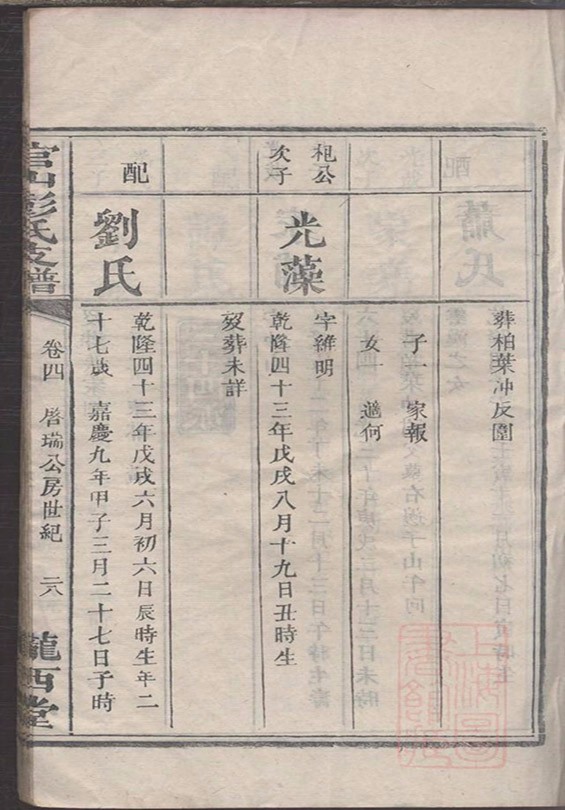 葬柏葉冲反圍
子一 家報
女一 適何
相公
次子
光藻
字維明
乾隆四十三年戊戌八月十九日丑時生
歿葬未詳
配
劉氏
乾隆四十三年戊戌六月初六日辰時生年二
十七歲 嘉慶九年甲子三月二十七日子時
官山彭氏支譜
卷四 啓瑞公房世紀 六
隴西堂
上海圖
書館藏